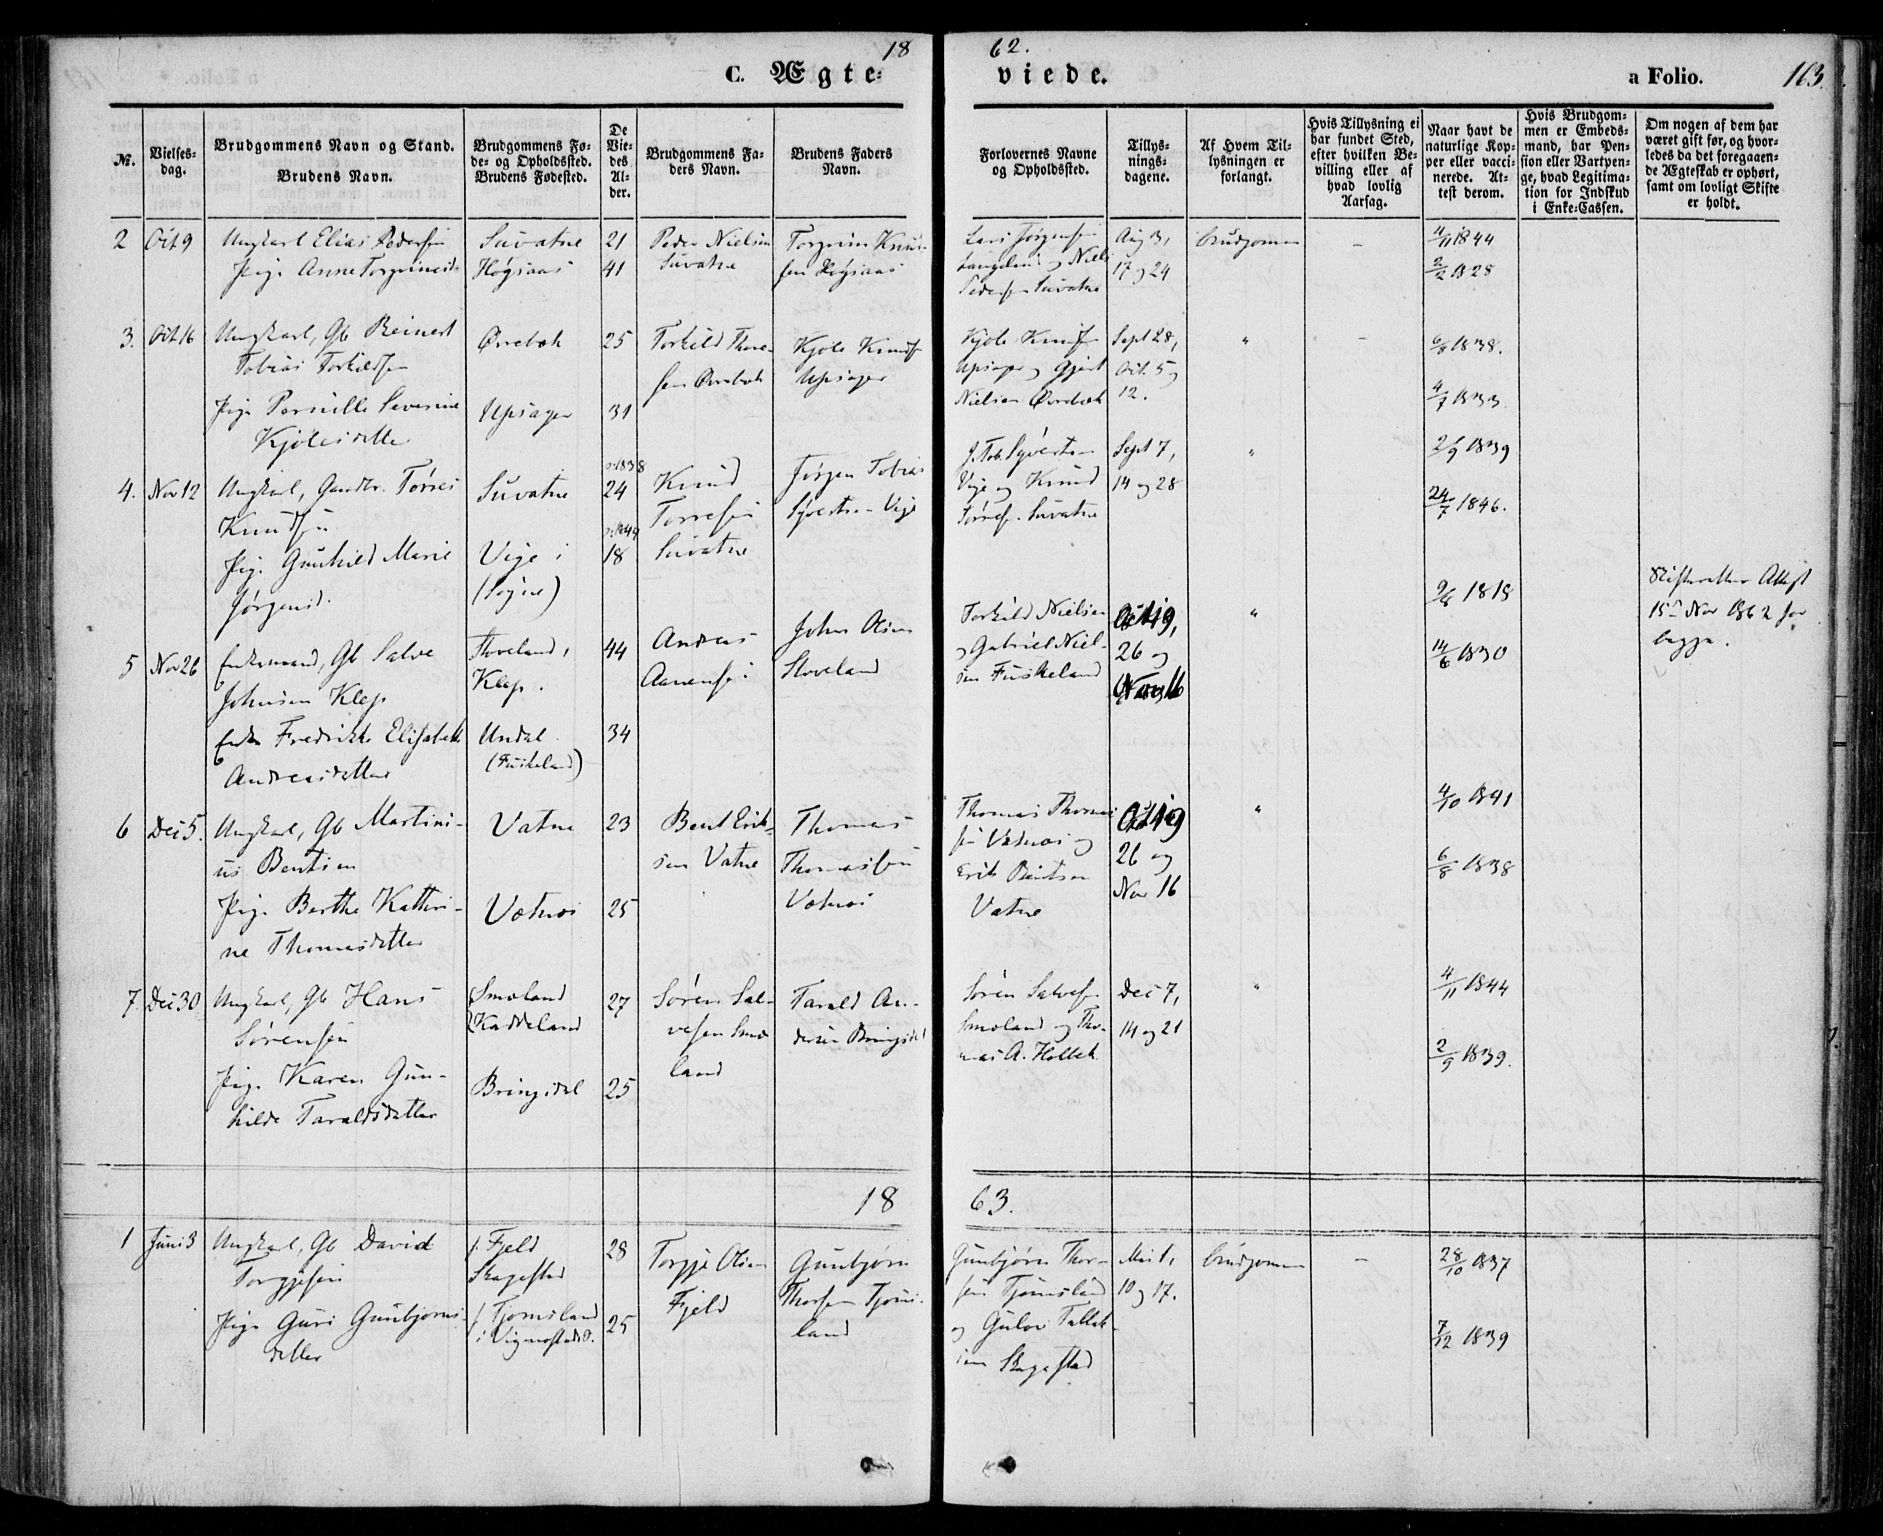 18 62.
C. Ægte- viede. a Folio. 163.
No.
Vielses-
dag.
Brudgommens Navn og Stand.
Brudens Navn.
Brudgommens Fø-
de- og Opholdssted.
Brudens Fødested.
De
Vie-
des
Al-
der.
Brudgommens Fa-
ders Navn.
Brudens Faders
Navn.
Forlovernes Navne
og Opholdssted.
Tillys-
nings-
dagene.
Af Hvem Til-
lysningen er
forlangt.
Hvis Tillysning ei
har fundet Sted,
efter hvilken Be-
villing eller af
hvad lovlig
Aarsag.
Naar havt de
naturlige Kop-
per eller vacci-
nerede. At-
test derom.
Hvis Brudgom-
men er Embeds-
mand, har Pen-
sion eller Vartpen-
ge, hvad Legitima-
tion for Indskud
i Enke-Cassen.
Om nogen af dem har
været gift før, og hvor-
ledes da det foregaaen-
de Ægteskab er ophørt,
samt om lovligt Skifte
er holdt.
2 Oct 9
Ungkarl Elias Pedersen
Pige Anne Torgrimsd.
Suvatne
Høgsaas
21
41
Peder Nielsen
Suvatne
Torgrim Knud-
sen Høgsaas
Lars Jørgensen
og Niels
Pedersen Suvatne
Aug 3,
17 og 24
brudgommen
-
4/11 1844
2/2 1828
3. Oct 16
Ungkarl, Gb Reinert
Tobias Torkildsen
Pige Pernille Severine
Kjølesdatter
Øvrebøk
Upsager
25
31
Torkild Thore-
sen Øvrebøk
Kjøle Knuds
Upsager
Kjøle Knuds
Upsager og Gjert
Nielsen Øvrebøk
Sept 28,
Oct. 5 og
12.
"
-
6/8 1838.
4/7 1833
4. Nov 12
Ungkarl, Gaardbr. Tørres
Knudsen
Pige Gunhild Marie
Jørgensd.
Suvatne
Vige i
(Søgne)
1838
24
1844
18
Knud
Torresen
Suvatne
Jørgen Tobias
Syvertsen Vige
J. Tob. Syvertsen
Vige og Knud
Tørres. Suvatne
Sept 7,
14 og 28
"
2/9 1839
24/7 1846.
5 Nov 26
Enkemand, Gb Salve
Johnsen Klep
Enke Fredrikke Elisabeth
Andreasdatter
Stoveland,
Klep.
Undal
(Fuskeland)
44
34
Andreas
Aanensen
John Olsen
Stoveland
Torkild Nielsen
og Gabriel Niel-
sen Fuskeland
Oct 19,
26 og
Nov 16
"
9/8 1818
14/6 1830
Skifteretten Attest
15de Nov 1862 for
begge.
6 Dec 5.
Ungkarl, Gb Martini-
us Bentsen
Pige Berthe Kathri-
ne Thomasdatter
Vatne
Vatnøi
23
25
Bent Erik-
sen Vatne
Thomas
Thomassen
Vatnøi
Thomas Thomas
sen Vatnøi og
Erik Bentsen
Vatne
Oct 19
26 og
Nov 16
"
4/10 1841
6/8 1838
7. Dec 30
Ungkarl, Gb Hans
Sørensen
Pige Karen Gun-
hilde Taraldsdatter
Smoland
Kaddeland
Bringsdal
27
25
Søren Sal-
vesen Smo-
land
Tarald An-
dersen Bringsdal
Søren Salvesen
Smoland og Tho-
mas A. Holbek
Dec 7,
14 og 21
"
4/11 1844
2/9 1839.
18 63.
1 Juni 3
Ungkarl, Gb David
Torgjesen
Pige Guri Gunbjørns-
datter
f. Fjeld
Skagestad
f. Tjomsland
i Vigmostad.
28
25
Torgje Olsen
Fjeld
Gunbjørn
Thorsen Tjoms-
land
Gunbjørn Thor-
sen Tjomsland
og Gulov Tallak-
sen Skagestad
Mai 1,
10 og 17.
brudgommen
-
28/10 1837
7/12 1839